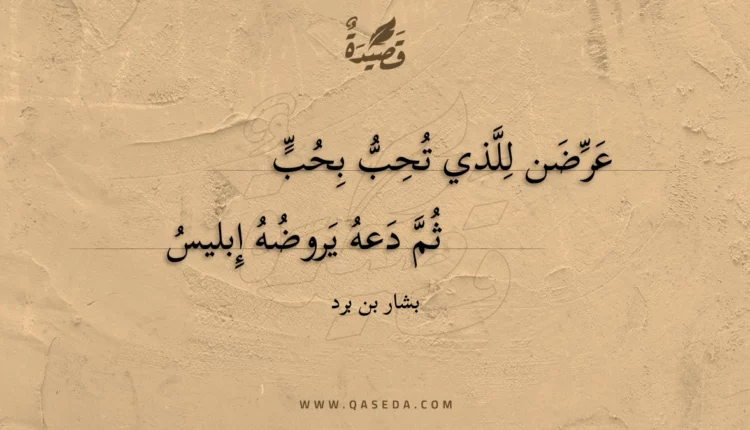 قَصِيدَةٌ
عَرِّضَن لِلَّذي تُحِبُّ بِحُبٍّ
ثُمَّ دَعهُ يَروضُهُ إِبليسُ
بشار بن برد
WWW.QASEDA.COM